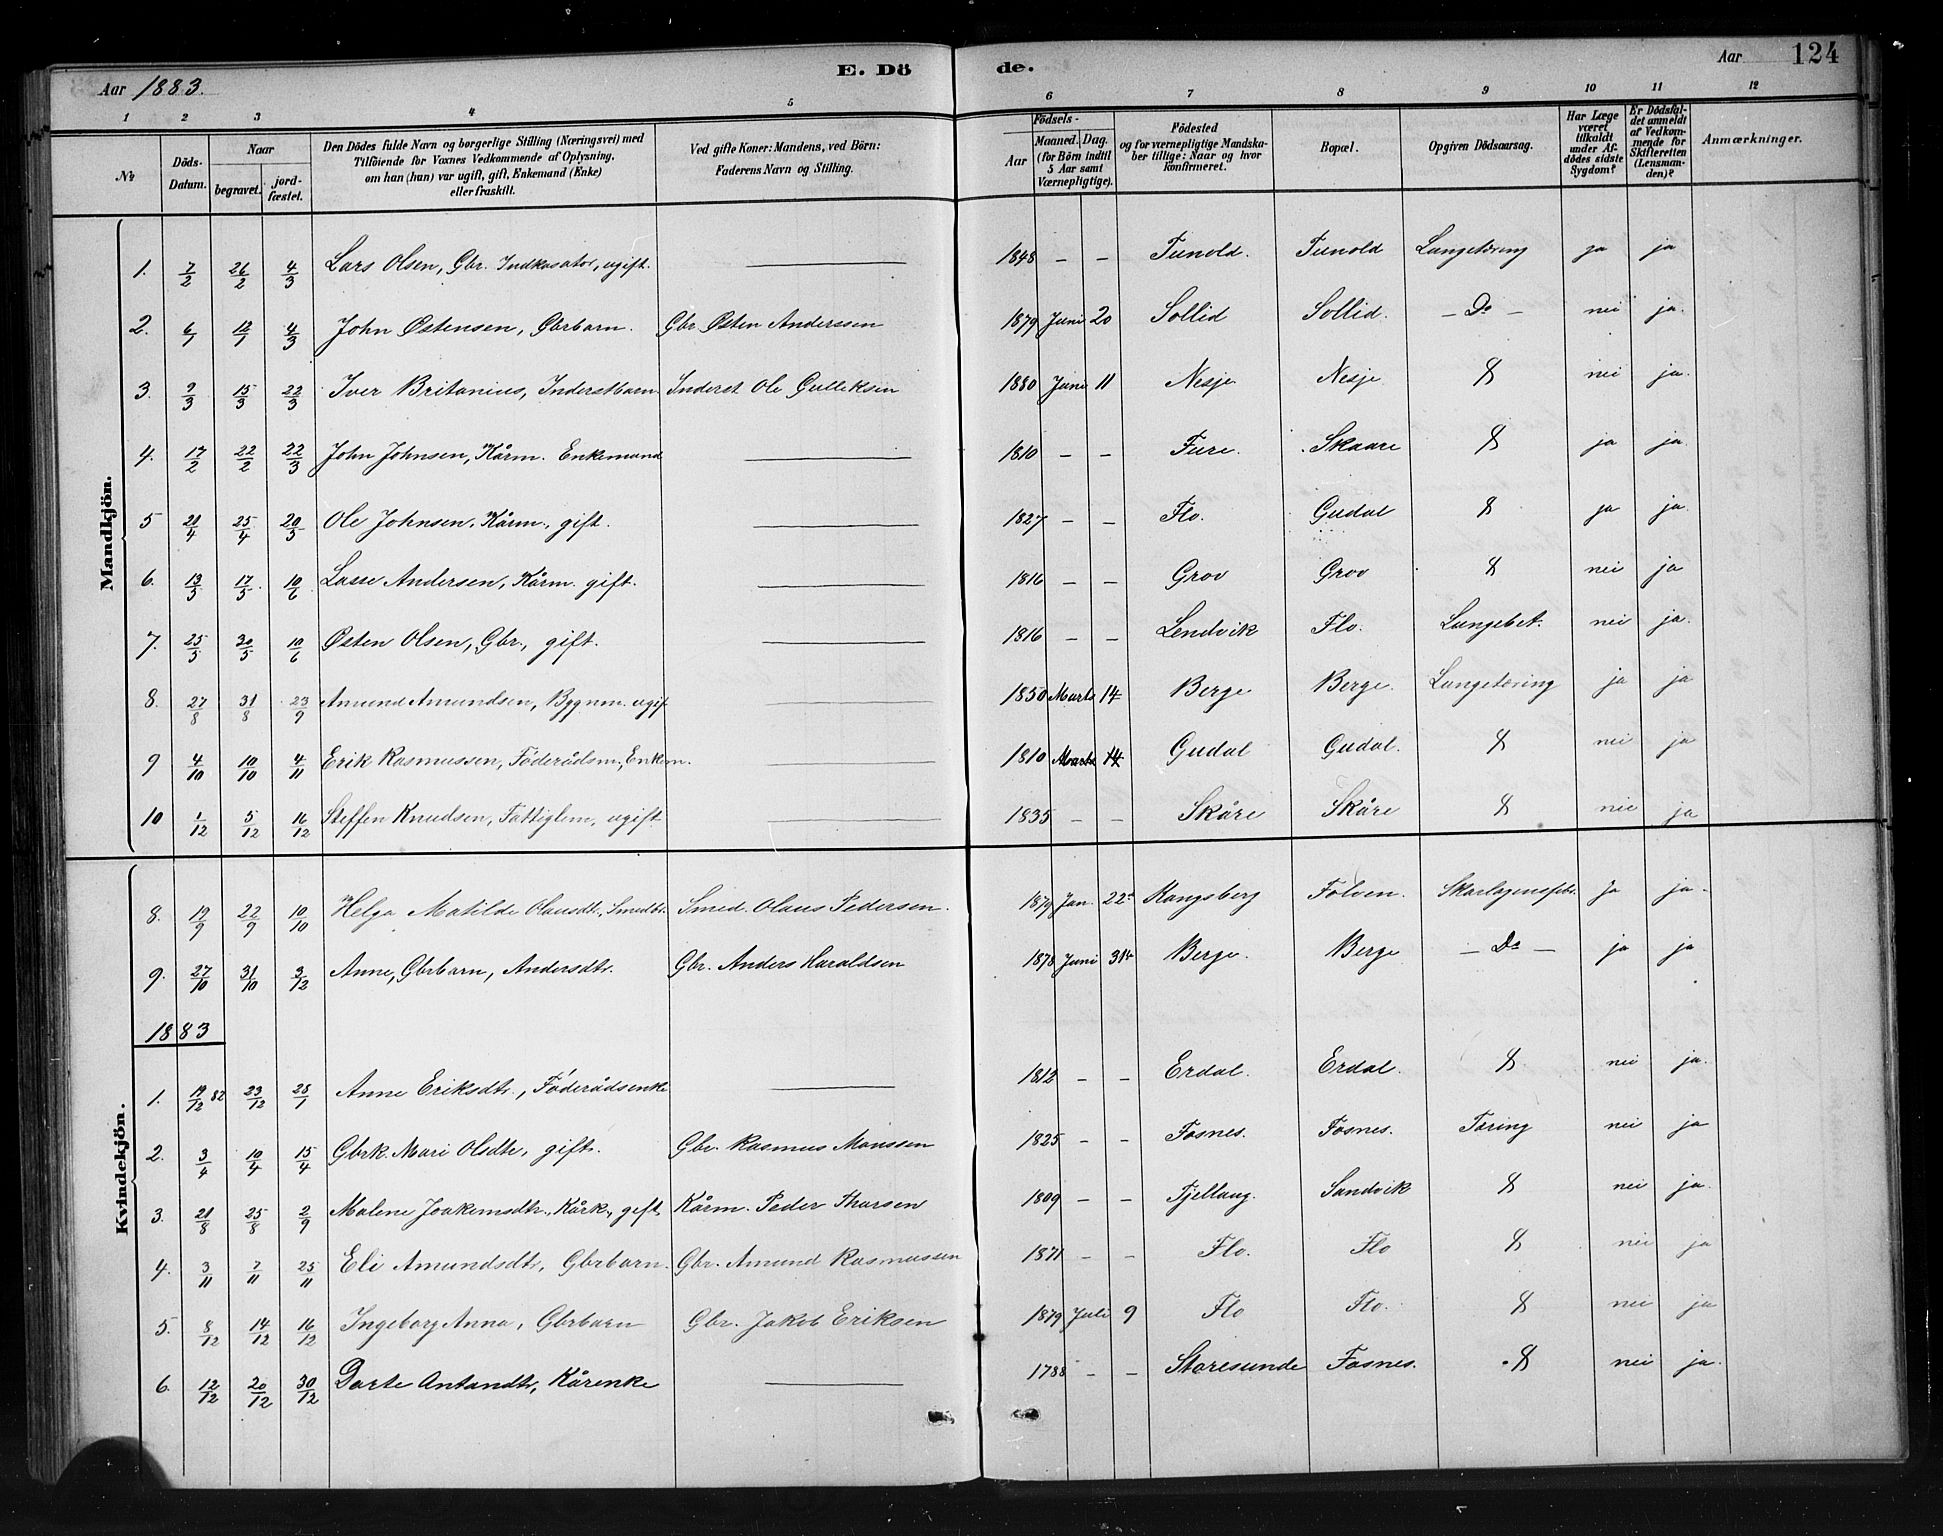 Aar 1883. E. Dö de. Aar 124
1 2 3 4 5 6 7 8 9 10 11 12
№ Döds-Datum. Naar begravet. jordfæstet. Den Dödes fulde Navn og borgerlige Stilling (Næringsvei) med Tilföiende for Voxnes Vedkommende af Oplysning, om han (hun) var ugift, gift, Enkemand (Enke) eller fraskilt. Ved gifte Koner: Mandens, ved Börn: Faderens Navn og Stilling. Födsels- Aar Maaned. Dag. (for Börn indtil 5 Aar samt Værnepligtige). Födested og for værnepligtige Mandskaber tillige: Naar og hvor konfirmeret. Bopæl. Opgiven Dödsaarsag. Har Læge været tilkaldt under Afdödes sidste Sygdom? Er Dödsfaldet anmeldt af Vedkommende for Skifteretten (Lensmanden)? Anmærkninger.
Mandkjön.
1. 7/2 26/2 4/3 Lars Olsen, Gbr. Indkasator, ugift. — 1848 – – Tunold. Tunold Lungetæring ja ja
2. 6/1 12/1 4/3 John Østensen, Gbrbarn. Gbr. Østen Anderssen 1879 Juni 20 Sollid Sollid. – Do – nei ja.
3. 9/3 15/3 22/3 Iver Britanius, Inderstbarn Inderst Ole Gulleksen 1880 Juni 11 Nesje Nesje nei ja.
4. 17/2 22/2 22/3 John Johnsen, Kårm. Enkemand — 1810 – – Fure. Skaare ja ja.
5 21/4 25/4 20/5 Ole Johnsen, Kårm., gift. — 1827 – – Flo. Gudal ja ja.
6. 13/5 17/5 10/6 Lasse Andersen, Kårm. gift. — 1816 – – Grov Grov nei ja
7. 25/5 30/5 10/6 Østen Olsen, Gbr., gift. — 1816 – – Lendvik Flo. Lungebet. nei ja.
8. 27/8 31/8 23/9 Amund Amundsen, Bygnm. ugif — 1850 Marts 14 Berge Berge. Lungetæring ja ja
9 4/10 10/10 4/11 Erik Rasmussen, Föderådsm., Enkem. — 1810 Marts 14 Gudal Gudal. nei ja
10 1/12 5/12 16/12 Steffen Knudsen, Fattiglem, ugift — 1835 – – Skåre Skåre nei ja
Kvindekjön.
8. 19/9 22/9 10/10 Helga Matilde Olausdtr., Smedbr. Smed. Olaus Pedersen. 1879 Jan. 22de Kongsberg Folven. Skarlagensfebr. ja ja.
9. 27/10 31/10 3/12 Anne, Gbrbarn, Andersdtr. Gbr. Anders Haraldsen 1878 Juni Berge. Berge – Do – ja ja
1883
1. 19/12 82 23/12 25/1 Anne Eriksdtr., Föderådsenke — 1812 – – Erdal. Erdal. nei ja.
2. 3/4 10/4 15/4 Gbrk. Mari Olsdtr, gift. Gbr. Rasmus Monssen 1825 – – Fosnes. Fosnes. Tæring nei ja
3. 21/8 25/8 2/9 Malene Joakemsdtr., Kårk., gift. Kårm. Peder Tharsen 1809 – – Fjellaug. Sandvik nei ja.
4. 3/11 7/11 25/11 Eli Amundsdtr, Gbrbarn. Gbr. Amund Rasmussen 1871 – – Flo. Flo nei ja
5. 8/12 14/12 16/12 Ingeborg Anna, Gbrbarn Gbr. Jakob Eriksen 1879 Juli 9 Flo Flo. nei ja
6. 12/12 20/12 30/12 Dorte Antondtr, Kårenke — 1788 – – Storesunde Fosnes. nei ja.